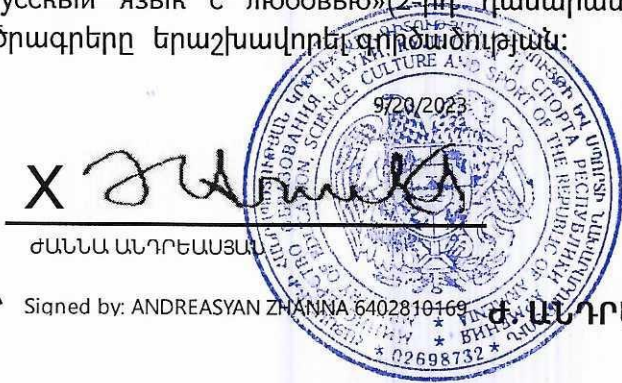 усский язык с любовью»(2-րդ դասարան
ծրագրերը երաշխավորել գործածության:
9/20/2023
X
ԺԱՆՆԱ ԱՆԴՐԵԱՍՅԱՆ
Signed by: ANDREASYAN ZHANNA 6402810169
Ժ. ԱՆԴՐԵ
EDUCATION, SCIENCE, CULTURE AND SPORT OF THE REPUBLIC OF
СПОРТА РЕСПУБЛИКИ
* 02698732 *